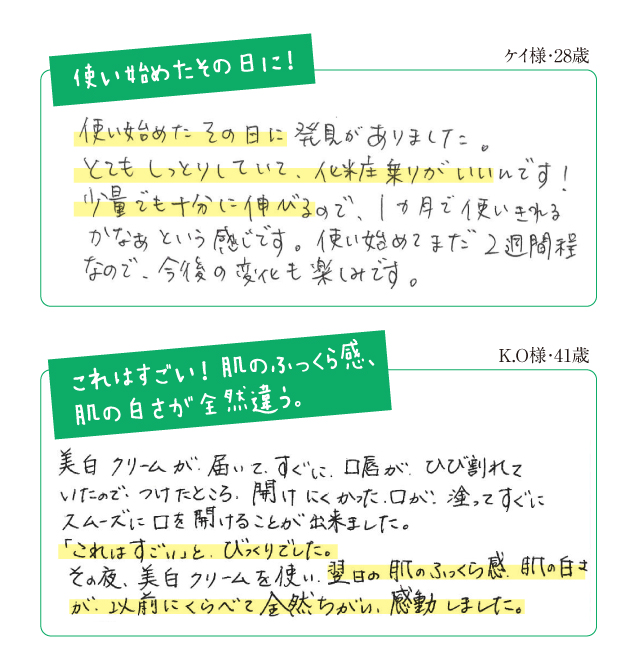 ケイ様・28歳
使い始めたその日に!
使い始めた その日に 発見がありました。
とても しっとりしていて、化粧乗りがいいんです!
少量でも十分に伸べるので、1か月で使いきれる
かなぁという感じです。使い始めてまだ2週間程
なので、今後の変化も楽しみです。
K.O様・41歳
これはすごい!肌のふっくら感、
肌の白さが全然違う。
美白クリームが、届いて、すぐに、口唇が、ひび割れて
いたので、つけたところ、開けにくかった、口が、塗ってすぐに
スムーズに口を開けることが出来ました。
「これはすごい」と、びっくりでした。
その夜、美白クリームを使い、翌日の肌のふっくら感、肌の白さ
が、以前にくらべて全然ちがい、感動しました。